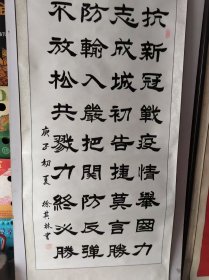 抗新冠戰疫情舉國力
志成城初告捷莫言勝
防輸入嚴把關防反彈
不放松共戮力終必勝
庚子初夏 徐其林書